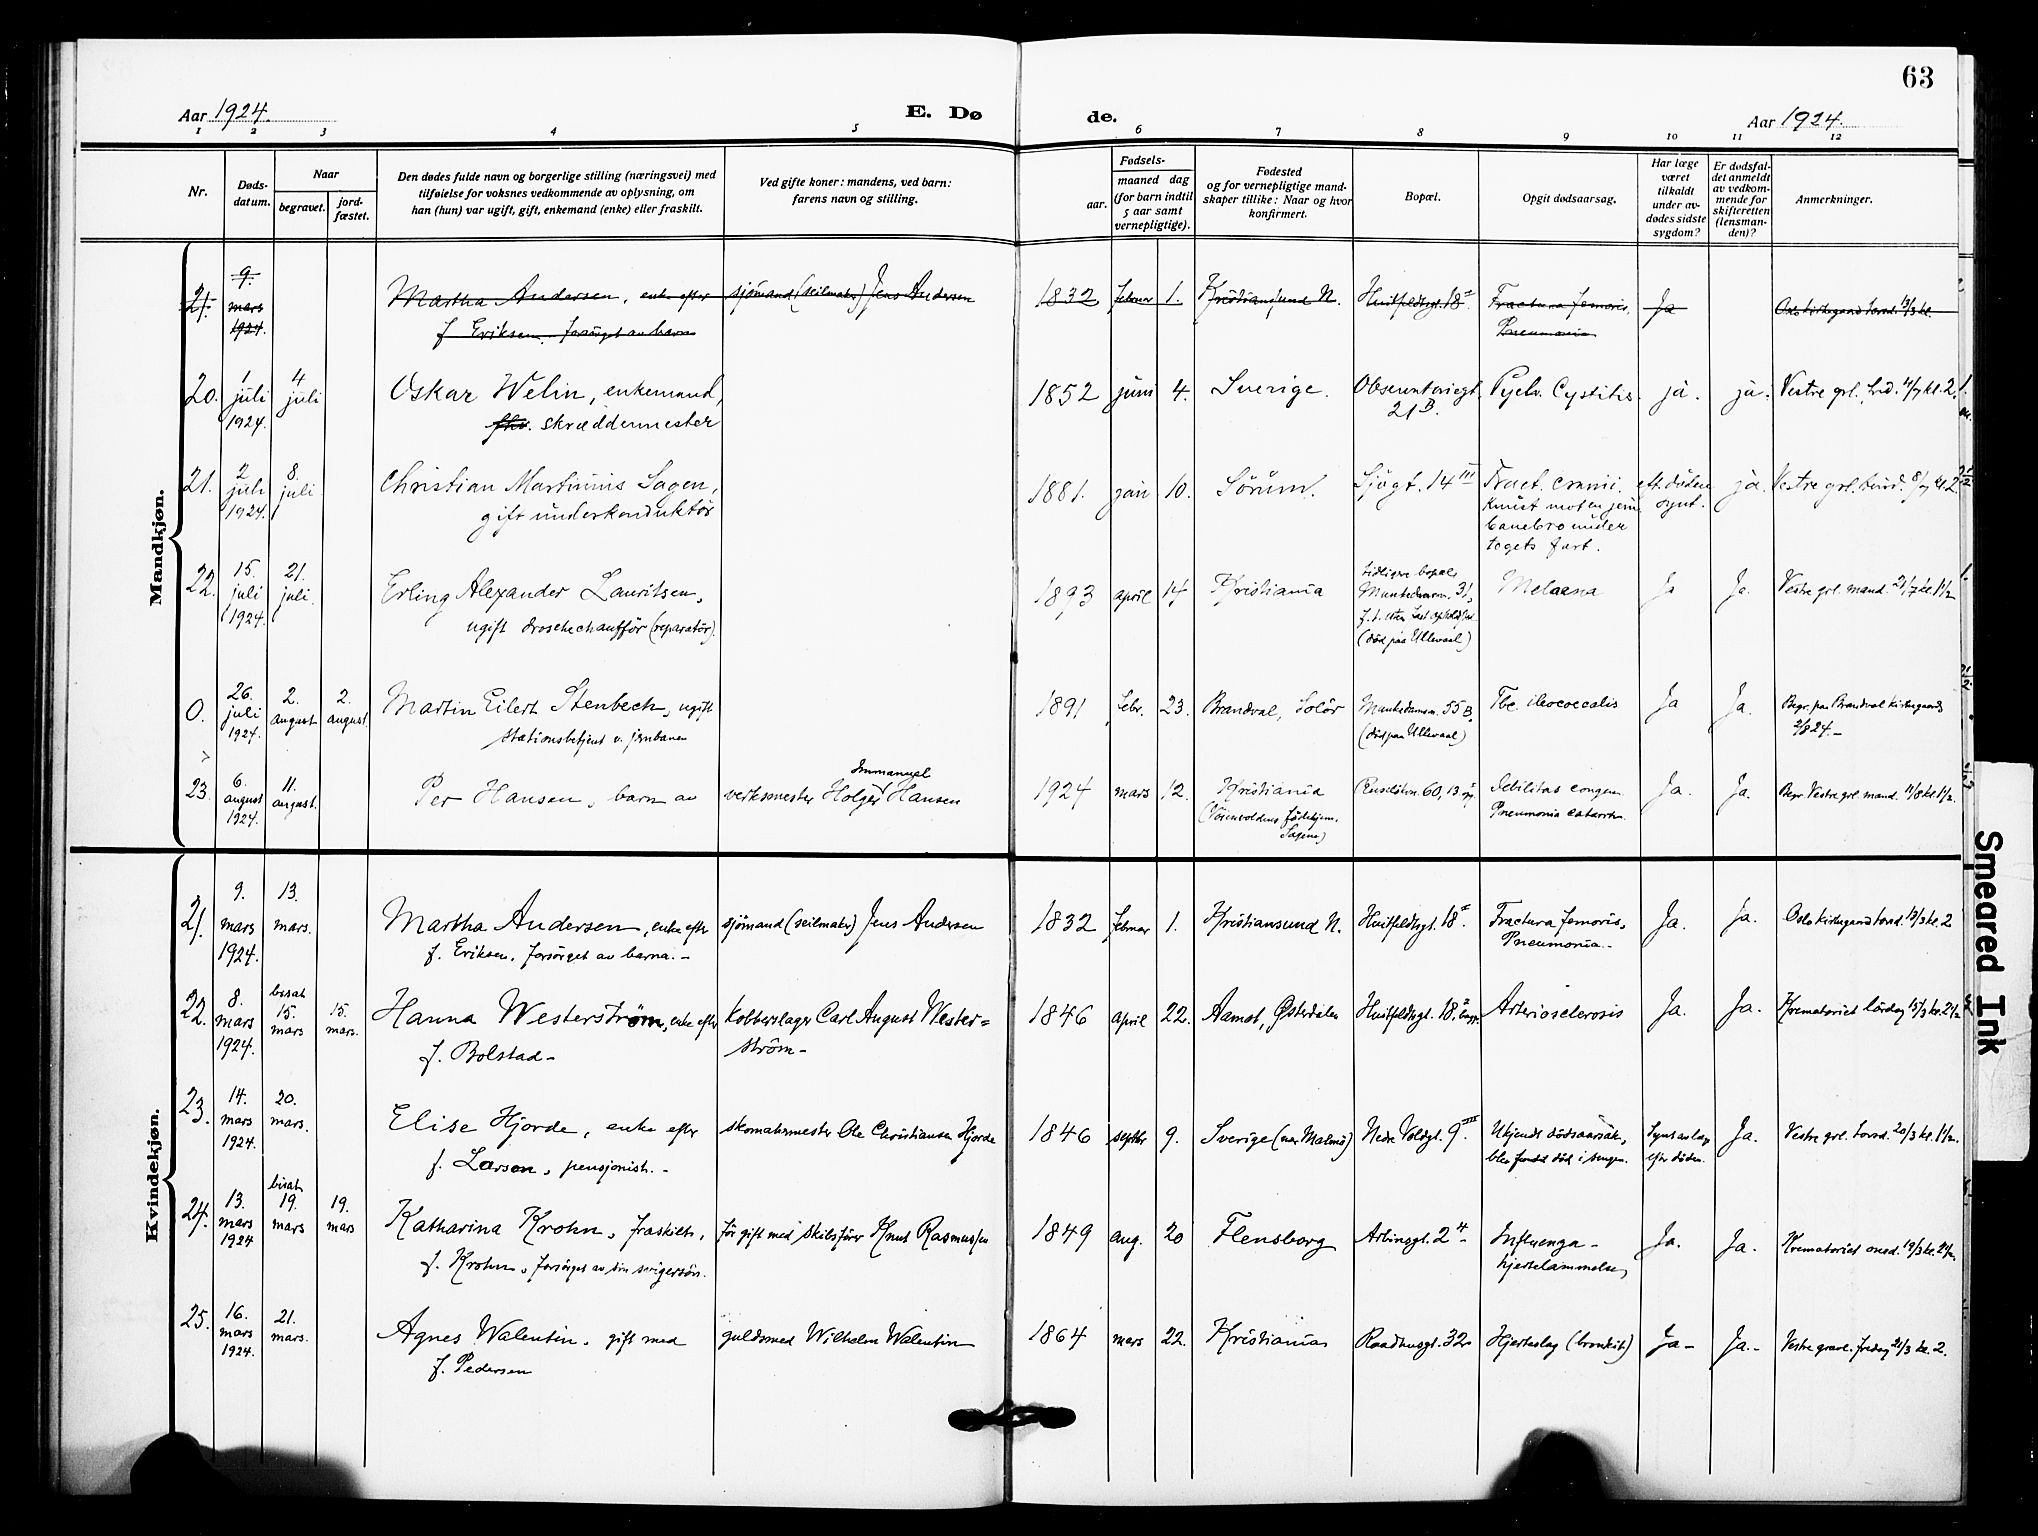 63
Aar 1924.
E. Døde.
Aar 1924.
1 2 3 4 5 6 7 8 9 10 11 12
Nr.
Døds-
datum.
Naar
begravet.
jord-
fæstet.
Den dødes fulde navn og borgerlige stilling (næringsvei) med
tilføielse for voksnes vedkommende av oplysning, om
han (hun) var ugift, gift, enkemand (enke) eller fraskilt.
Ved gifte koner: mandens, ved barn:
farens navn og stilling.
Fødsels-
aar.
maaned dag
(for barn indtil
5 aar samt
vernepligtige).
Fødested
og for vernepligtige mand-
skaper tillike: Naar og hvor
konfirmert.
Bopæl.
Opgit dødsaarsag.
Har læge
været
tilkaldt
under av-
dødes sidste
sygdom?
Er dødsfal-
det anmeldt
av vedkom-
mende for
skifteretten
(lensman-
den)?
Anmerkninger.
Mandkjøn.
21. 9. mars 1924. Martha Andersen, enke efter sjömand (seilmaker) Jens Andersen 1832 februar 1. Kristiansund N. Huitfeldtsgt. 18 II Fractura femoris, Ja Oslo kirkegaard torsd. 13/3 kl.
f. Eriksen. forsörget av barna Pneumonia
20. 1 juli 1924. 4 juli Oskar Welin, enkemand, 1852 juni 4. Sverige. Observatoriegt. 21 B. Pyelo. Cystitis. ja. ja. Vestre grl. 4/7 kl. 2.
skræddermester
21. 2 juli 1924. 8. juli Christian Martinius Sagen, 1881. jan 10. Sörum. Sjögt. 14 III Fract. cranii. eft. döden ja. Vestre grl. tirsd. 8/7 kl. 2
gift underkonduktör Knust mot en jern synt.
banebro under
togets fart.
22. 15. juli 1924. 21. juli. Erling Alexander Lauritsen, 1893 april 14 Kristiania tidligere bopæl Melaena Ja Ja. Vestre grl. mand. 21/7 kl. 1 1/2
ugift droschechauffør (reparatör). Munkedamsv. 31,
(död paa Ullevaal)
0. 26. juli 1924. 2. august 2. august. Martin Eilert Stenbech, ugift 1891 febr. 23. Brandval, Solör Munkedamsv. 55 B, Tbc. ileocoecalis Ja Ja. Begr. paa Brandval kirkegaard
stationsbetjent v. jernbanen (död paa Ullevaal) 2/8 24.–
23. 6. august 1924. 11. august. Per Hansen, barn av verksmester Holger Immanuel Hansen 1924 mars 12. Kristiania 60, 13 Debilitas congen. Ja. Ja. Begr. Vestre grl. mand. 11/8 kl. 1 1/2.
födehjem, Pneumonia catarrh.
Sagene)
Kvindekjøn.
21. 9. mars 1924. 13. mars. Martha Andersen, enke efter sjömand (seilmaker) Jens Andersen 1832 februar 1. Kristiansund N. Huitfeldtsgt. 18 II Fractura femoris, Ja. Ja. Oslo kirkegaard torsd. 13/3 kl. 2
f. Eriksen. forsörget av barna.– Pneumonia.–
22. 8. mars 1924. bisat 15. mars 15. mars. Hanna Weste​rström, enke efter kobberslager Carl August Wester= 1846 april 22. Aamot, Østerdalen Huitfeldtsgt. 18. Arteriosclerosis Ja. Ja. Krematoriet lördag 15/3 kl. 2 1/2
f. Bolstad– ström–
23. 14. mars 1924. 20. mars. Elise Hjorde, enke efter skomakermester Ole Christiansen Hjorde 1846 septbr 9. Sverige (nær Malmö) Nedre Voldgt. 9 III Ukjendt dödsaarsak, Synt av læge Ja. Vestre grl. torsd. 20/3 kl. 1 1/2.
f. Larsen, pensjonist.– blev fundet död i sengen. efter döden.
24. 13. mars 1924 bisat 19. mars 19. mars Katharina Krohn, fraskilt, för gift med skibsförer Knut Rasmussen 1849 aug. 20 Flensborg Arbinsgt. 2 4– Influenza– Ja. Ja. Krematoriet onsd. 19/3 kl. 2 1/2.
f. Krohn, forsörget av sin svigersön. hjertelammelse,
25. 16. mars 1924. 21. mars. Agnes Walentin, gift med guldsmed Wilhelm Walentin 1864 mars 22. Kristiania Raadhusgt. 32 Hjerteslag (bronkit) Ja– Ja.– Vestre gravl. fredag 21/3 kl. 2.
f. Pedersen
Smeared Ink